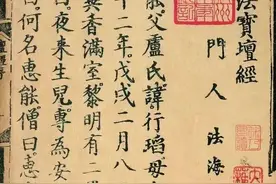 法寶壇經
門人 法海
能父盧氏諱行瑫母
十二年。戊戌二月八
異香滿室黎明有二
曰。夜來生兒。專為安
曰何名惠能僧曰惠